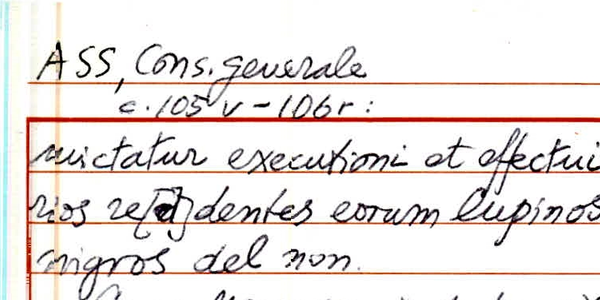 ASS, Cons. generale
c. 105 v - 106 r:
mictatur executioni et effectui
rios re[d]dentes eorum lupinos
nigros del non.